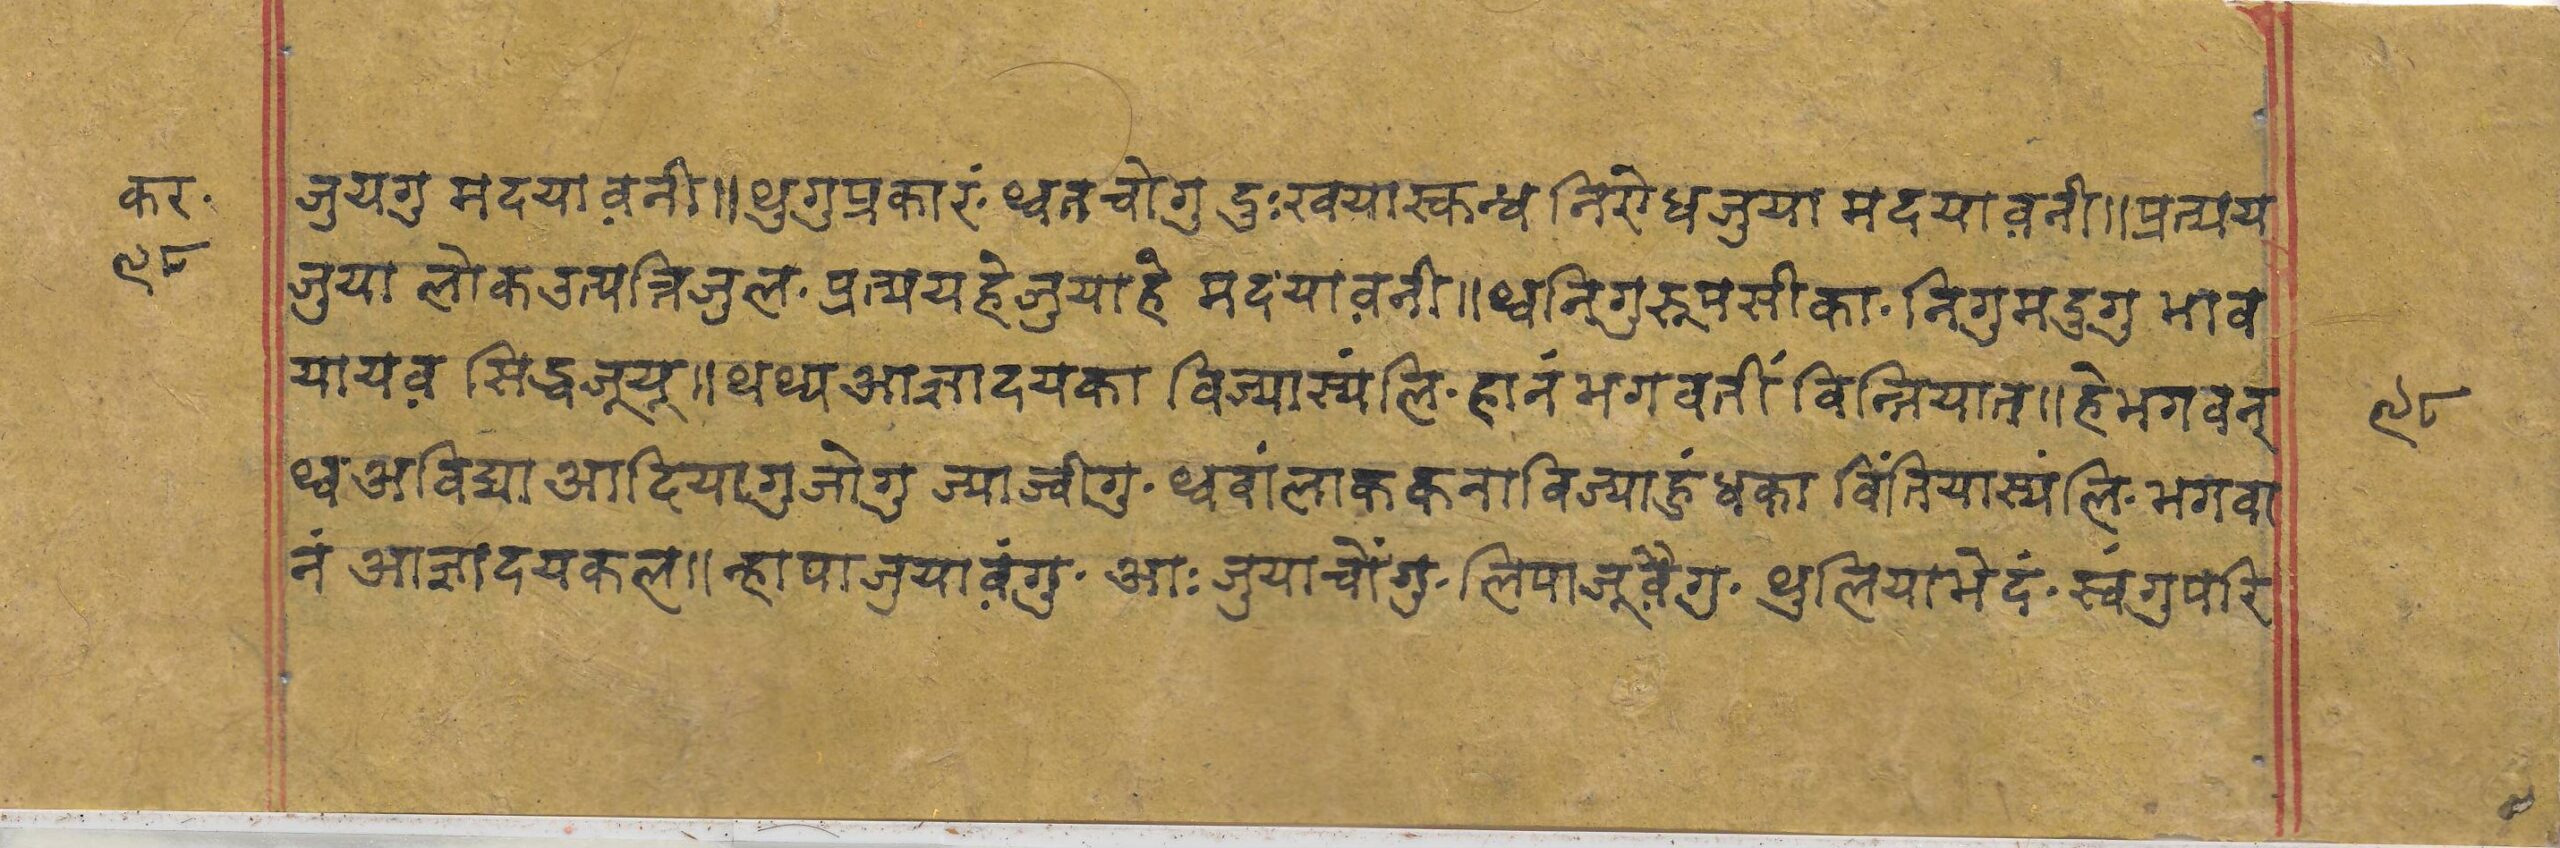 कर·
९८
जुयगु मदयाव़नी॥थुगुप्रकारं· थ्वतचोंगु दुःखयास्कन्ध निरोधजुया मदयाव़नी॥प्रत्यय
जुया लोकउत्पन्निजुल· प्रत्ययहेजुयाहे मदयाव़नी॥थ्वनिगुरूपसीका· निगुमदुगु भाव
यायव़ सिद्धजूयू॥थथ्यआज्ञादयका विज्यास्यंलि· हानं भगवतीं विन्नियात॥हेभगवन्
थ्वअविद्या आदियागुजोगु ज्याज्वीगु· थ्ववांलाककनाविज्याहुंधका विंतियास्यंलि· भगवा
नं आज्ञादयकल॥न्हापाजुयाव़ंगु· आः जुयाचोंगु· लिपाजूव़ैगु· थुलियाभेदं· स्वंगुपरि
९८